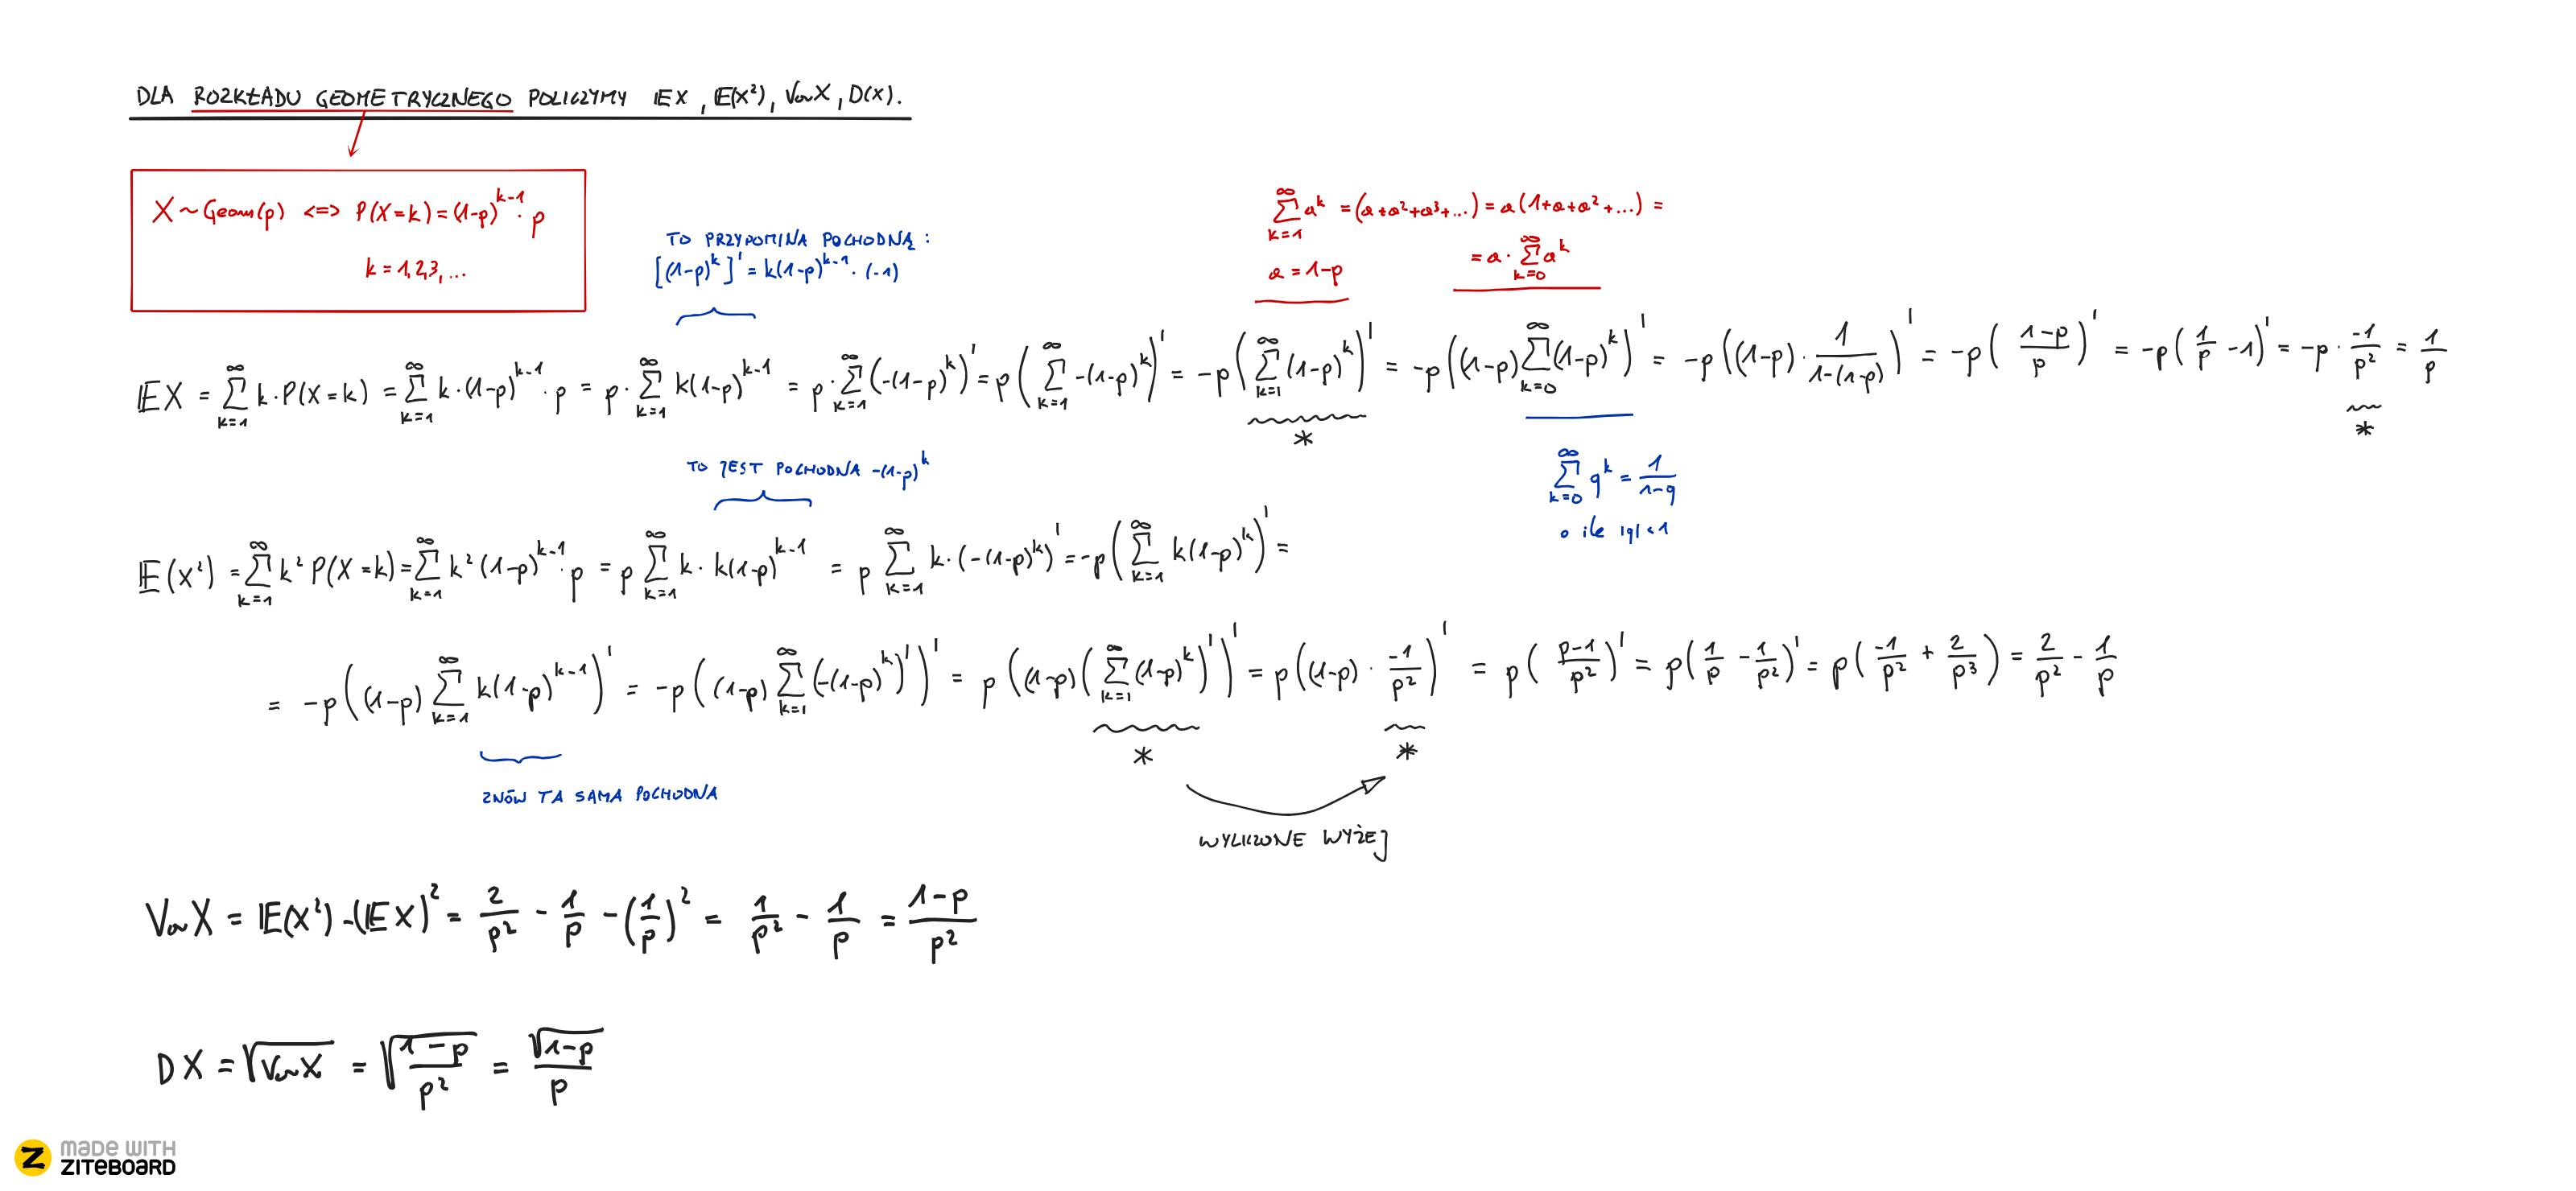 DLA ROZKŁADU GEOMETRYCZNEGO POLICZYMY 𝔼X, 𝔼(X²), VarX, D(X).
X ~ Geom(p) <=> P(X=k) = (1-p)^{k-1} · p
k = 1,2,3, ...
TO PRZYPOMINA POCHODNĄ:
[(1-p)^k]' = k(1-p)^{k-1} · (-1)
∑_{k=1}^{∞} a^k = (a+a²+a³+...) = a(1+a+a²+...) =
a = 1-p
= a · ∑_{k=0}^{∞} a^k
𝔼X = ∑_{k=1}^{∞} k·P(X=k) = ∑_{k=1}^{∞} k·(1-p)^{k-1}·p = p·∑_{k=1}^{∞} k(1-p)^{k-1} = p·∑_{k=1}^{∞} (-(1-p)^k)' = p(∑_{k=1}^{∞} -(1-p)^k)' = -p(∑_{k=1}^{∞} (1-p)^k)' = -p((1-p)∑_{k=0}^{∞} (1-p)^k)' = -p((1-p)·\frac{1}{1-(1-p)})' = -p(\frac{1-p}{p})' = -p(\frac{1}{p} -1)' = -p·\frac{-1}{p²} = \frac{1}{p}
* *
TO JEST POCHODNA -(1-p)^k
∑_{k=0}^{∞} q^k = \frac{1}{1-q}
o ile |q|<1
𝔼(X²) = ∑_{k=1}^{∞} k² P(X=k) = ∑_{k=1}^{∞} k² (1-p)^{k-1}·p = p ∑_{k=1}^{∞} k· k(1-p)^{k-1} = p ∑_{k=1}^{∞} k·(-(1-p)^k)' = -p(∑_{k=1}^{∞} k(1-p)^k)' =
= -p((1-p) ∑_{k=1}^{∞} k(1-p)^{k-1})' = -p((1-p) ∑_{k=1}^{∞} (-(1-p)^k)')' = p((1-p)(∑_{k=1}^{∞} (1-p)^k)')' = p((1-p)·\frac{-1}{p²})' = p(\frac{p-1}{p²})' = p(\frac{1}{p} - \frac{1}{p²})' = p(\frac{-1}{p²} + \frac{2}{p³}) = \frac{2}{p²} - \frac{1}{p}
* *
ZNÓW TA SAMA POCHODNA
WYLICZONE WYŻEJ
VarX = 𝔼(X²) - (𝔼X)² = \frac{2}{p²} - \frac{1}{p} - (\frac{1}{p})² = \frac{1}{p²} - \frac{1}{p} = \frac{1-p}{p²}
DX = √{VarX} = √{\frac{1-p}{p²}} = \frac{√{1-p}}{p}
Z MADE WITH
ZITEBOARD